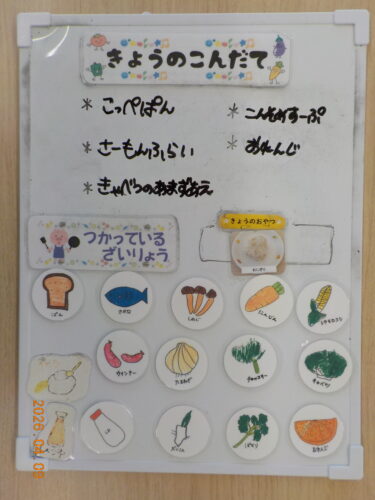 きょうのこんだて
* こっぺぱん
* こんそめすーぷ
* さーもんふらい
* おれんじ
* きゃべつのあまずあえ
つかっている
ざいりょう
きょうのおやつ
おにぎり
ぱん
さかな
しめじ
にんじん
とうもろこし
ウインナー
たまねぎ
ブロッコリー
キャベツ
だいこん
ぱせり
おれんじ
2026.04.09